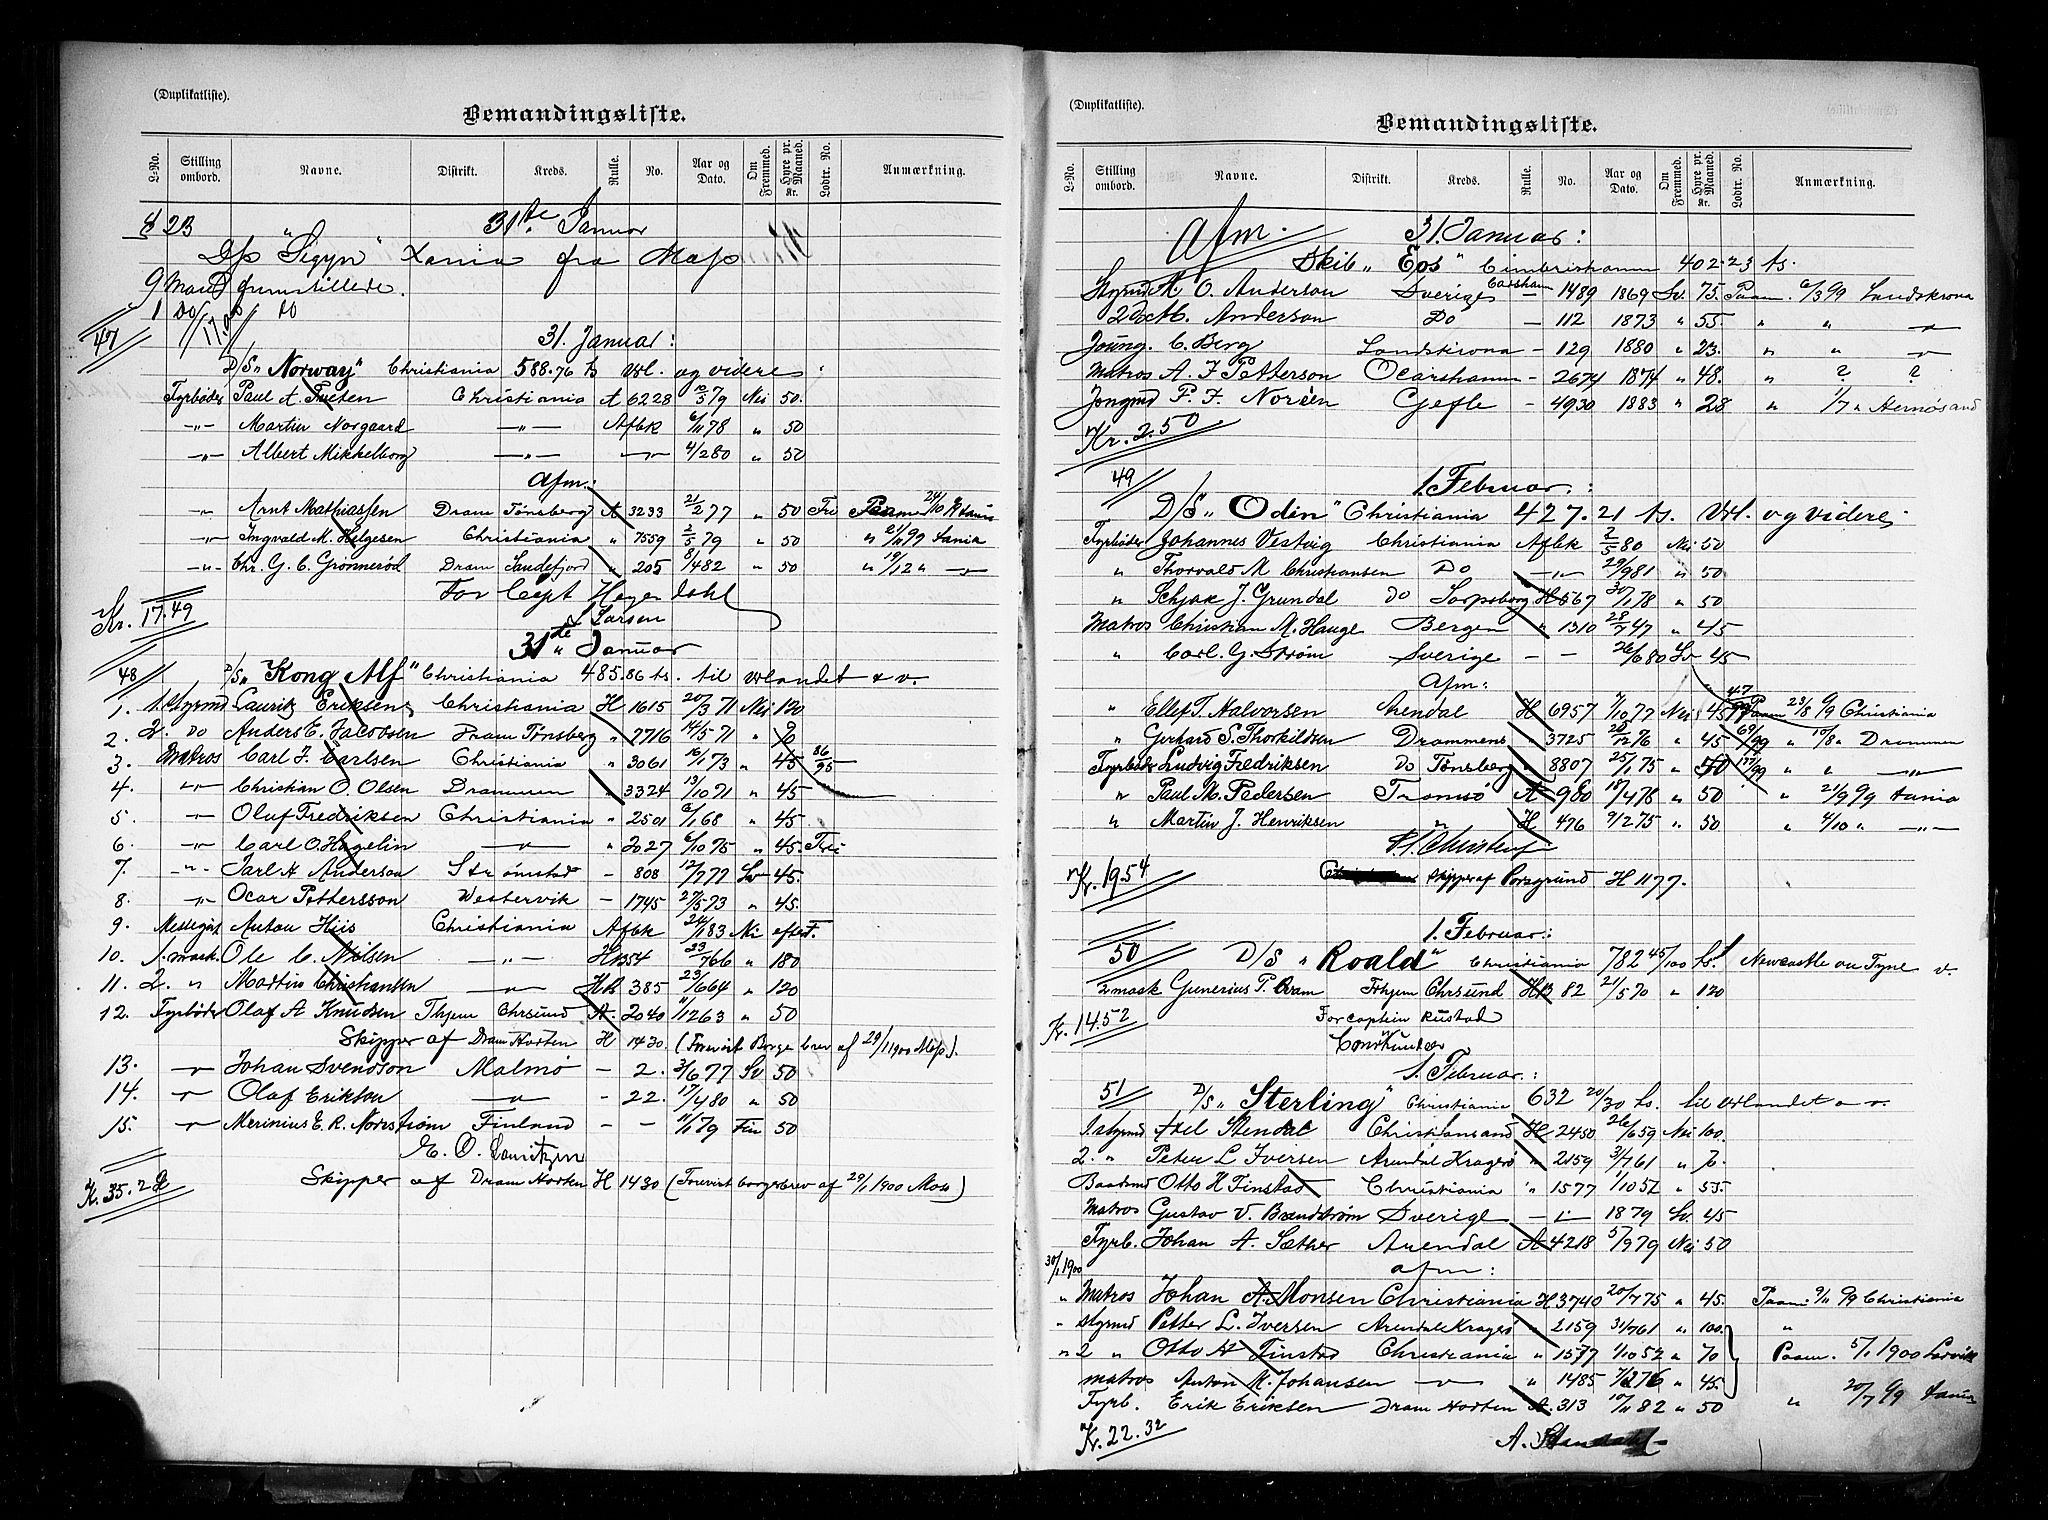 (Duplikatliste).
Bemandingsliste.
L-No. Stilling ombord. Navne. Distrikt. Kreds. Rulle. No. Aar og Dato. Om Fremmed. Hyre pr. Maaned. Kr. Lodtr. No. Anmærkning.
31te Januar
D/s "Sigyn" Xania fra Moss
9 Mand fremstillede.
1 Do Do
47 31. Januar:
D/S "Norway" Christiania 588.76 ts Udl. og videre
Fyrbøder Paul A. Tveten Christiania A 6228 10/5 79 Nei 50.
–"– Martin Norgaard –"– Afbk 6/11 78 " 50
–"– Albert Mikkelborg –"– –"– 4/2 80 " 50
Afm.:
–"– Arnt Mathiassen Dram Tønsberg A 3233 21/2 77 " 50 Fri Paam 24/10 99 Xania
–"– Ingvald M. Helgesen Christiania " 7559 2/5 79 " 50 " 21/11 99 Xania
–"– Chr. G. C. Grønnerød Dram Sandefjord " 205 8/4 82 " 50 " 19/12 " –"–
For Capt Heyerdahl
Larsen
Kr. 17.49
31te Januar
48 D/S "Kong Alf" Christiania 485.86 ts. til Udlandet & v.
1. 1. Styrmd Lauritz Eriksen Christiania H 1615 20/3 71 Nei 120
2. 2. Do Anders E. Jacobsen Dram Tønsberg " 2716 14/5 71 " 90
3. Matros Carl F. Carlsen Christiania " 3061 16/1 73 " 45 86/95
4. –"– Christian O. Olsen Drammen " 3324 13/10 71 " 45
5. –"– Oluf Fredriksen Christiania " 2501 6/1 68 " 45
6. –"– Carl O. Hagelin –"– " 2027 6/10 75 " 45. Fri
7. –"– Jarl A Anderson Strømstad – 808 12/7 77 Sv 45.
8. –"– Ocar Pettersson Westervik – 1745 27/5 73 " 45.
9. Messegut Anton Hiis Christiania Afbk 24/1 83 Nei efter T.
10. 1. mask. Ole C. Nilsen –"– HB 54 23/7 66 " 180
11. 2. " Martin Christiansen –"– HB 385 23/6 64 " 120
12. Fyrbøder Olaf A Knudsen Thjem Chrsund A. 2040 11/12 63 " 50
Skipper af Dram Horten H 1430. (Forevist Borgerbrev af 29/1 1900 Moss).
13. –"– Johan Svendson Malmø – 2. 3/6 77 Sv 50
14. –"– Olaf Erikson –"– – 22. 17/4 80 " 50
15. –"– Merinius E. R. Nordstrøm Finland – – 11/1 79 Fin 50
Skipper af Dram Horten H 1430 (Forevist borgerbrev af 29/1 1900 Moss)
(Duplikatliste).
Bemandingsliste.
L-No. Stilling ombord. Navne. Distrikt. Kreds. Rulle. No. Aar og Dato. Om Fremmed. Hyre pr. Maaned. Kr. Lodtr. No. Anmærkning.
Afm. 31. Januar:
Skib "Eos" Cimbrishamn 402.23 ts.
Styrmd A. O. Anderson Sverige Carsham – 1489 1869 Sv. 75. Paam. 6/3 99 Landskrona
2 Do M. Anderson Do – 112 1873 " 55. " " –"–
Joung. C. Berg Landskrona – 129 1880 " 23. " " –"–
Matros A. F. Petterson Ocarshamn – 2674 1874 " 48. " ? ?
Jongmd P. F. Norsen Gefle – 4930 1883 " 28 " 1/7 " Hernøsand
Kr. 2.50
49 1. Februar.:
D/S "Odin" Christiania 427.21 ts. Udl. og videre
Fyrbøder Johannes Vestvig Christiania Afbk 2/5 80 Nei 50
" Thorvald M Christiansen Do –"– 29/9 81 " 50
" Schjak J. Grundal Do Sarpsborg H 567 30/1 78 " 50
Matros Christian M. Hauge Bergen " 1310 28/7 47 " 45
" Carl. G. Strøm Sverige – – 26/6 80 Sv 45
Afm:
" Ellef T. Halvorsen Arendal H 6957 7/10 77 Nei 45 47/99 Paam 23/8 99 Christiania
" Gerhard S. Thorkildsen Drammens " 3725 20/12 76 " 45 69/99 " 10/8 " Drammen
Fyrbøder Ludvig Fredriksen Do Tønsberg " 8807 25/1 75 " 50 177/99 " " –"–
" Paul M. Pedersen Tromsø A 980 18/4 78 " 50 " 21/9 99 Xania
" Martin J. Henriksen " H 476 9/2 75 " 50 " 4/10 " –"–
Kr. 19.54
skipper af Porsgrund H 1177.
1. Februar.:
50 D/S "Roald" Christiania 782 45/100 ts. Newcastle on Tyne v.
2 mask Gunerius P. Bram Trhjem Chrsund HB 82 21/5 70 " 120
Kr. 14.52
For captein Rustad
1. Februar.:
51 D/S "Sterling" Christiania 632 20/30 ts. til Udlandet o v.
1 styrmd Axel Stendal Christiansand H 2450 26/6 59 Nei 100.
2. " Peter L Iversen Arendal Kragerø " 2159 31/7 61 " 7.
Baadsmd Otto H Finstad Christiania " 1577 1/10 52 " 55.
Matros Gustav V. Brandstrøm Sverige – " – 1879 Sv. 45
Fyrb. Johan A. Sæther Arendal A 4218 5/9 79 Nei 50
30/1 1900 afm:
" Matros Johan A. Monsen Christiania H 3740 20/7 75 " 45. Paam: 9/11 99 Christiania
" Styrmd Petter L. Iversen Arendal Kragerø " 2159 31/7 61 " 100. "
" 2 " Otto H Finstad Christiania " 1577 1/10 52 " 70 Paam. 5/1 1900 Larvik
matros Anton M. Johansen –"– " 1485 7/2 76 " 45.
Fyrb. Erik Eriksen Dram Horten A. 313 10/11 82 " 50 " 20/7 99 Xania
Kr. 22.32
A. Stendahl